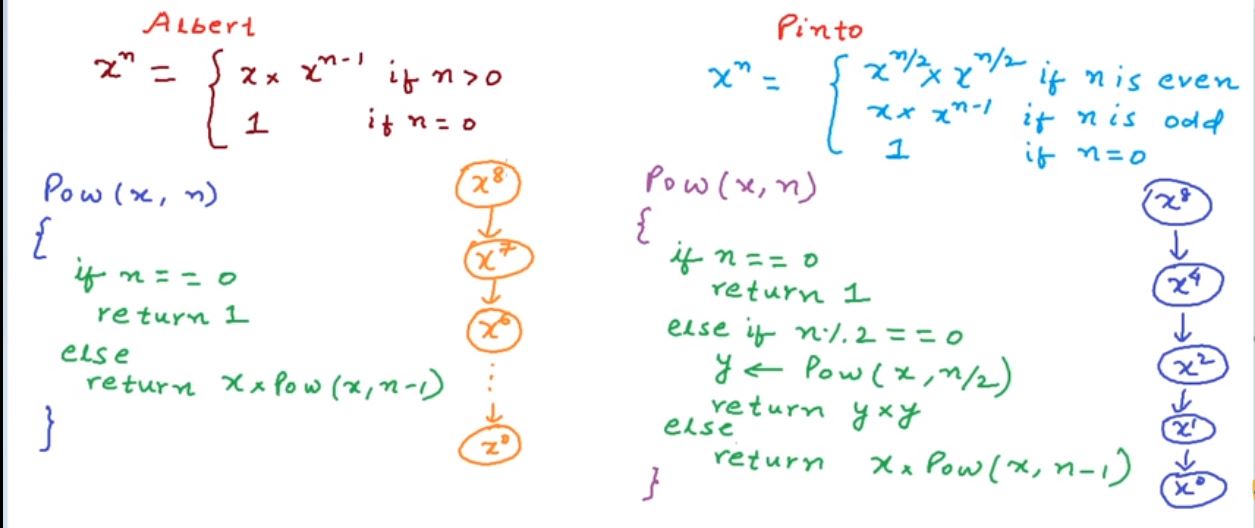 Albert
xⁿ = { x × xⁿ⁻¹ if n > 0
1 if n = 0
Pow (x, n)
{
if n == 0
return 1
else
return x × Pow (x, n-1)
}
x⁸
x⁷
x⁶
⋮
x⁰
Pinto
xⁿ = { x^n/2 × x^n/2 if n is even
x × xⁿ⁻¹ if n is odd
1 if n = 0
Pow (x, n)
{
if n == 0
return 1
else if n % 2 == 0
y ← Pow (x, n/2)
return y × y
else
return x × Pow (x, n-1)
}
x⁸
x⁴
x²
x¹
x⁰